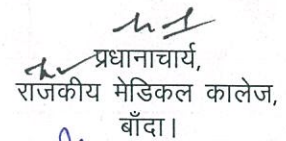 प्रधानाचार्य,
राजकीय मेडिकल कालेज,
बाँदा।